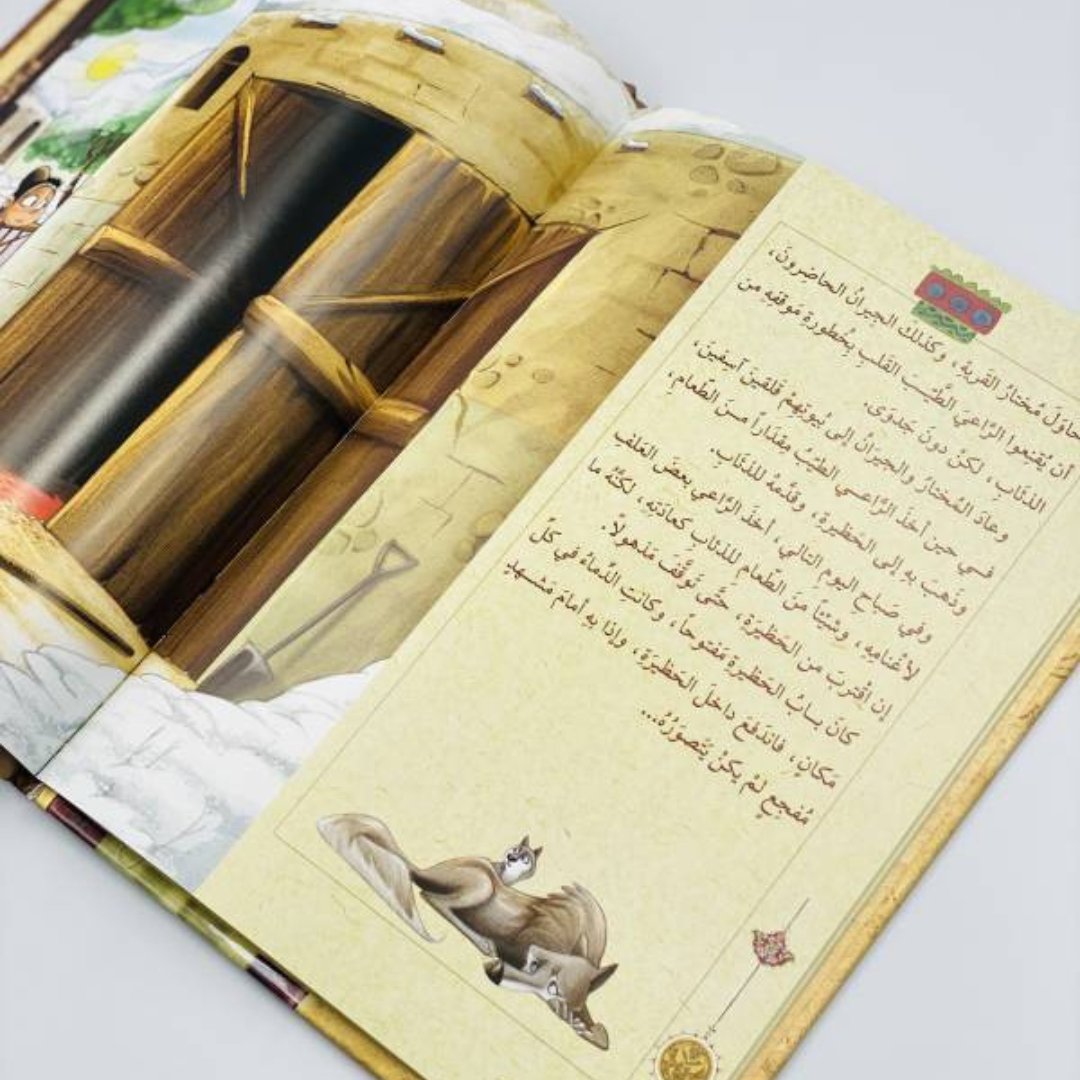 حاوَلَ مُختارُ القَريةِ، وكذلكَ الجيرانُ الحاضِرونَ،
أن يُقنِعوا الرَّاعيَ الطَّيِّبَ القلبِ بِخُطورةِ مَوقِفِهِ من
الذئابِ، لكنْ دونَ جَدوَى.
وعادَ المُختارُ والجيرانُ إلى بُيوتِهِمْ قَلقينَ آسِفينَ،
فـي حين أخذَ الرَّاعـي الطَّيِّبُ مِقدَاراً مـنَ الطَّعامِ،
وذَهبَ بهِ إلى الحَظيرةِ، وقدَّمهُ للذئابِ.
وفي صَباحِ اليومِ التالي، أخذَ الرَّاعي بعضَ العَلفِ
لأغْنامِهِ، وشَيْئاً منَ الطّعامِ للذئابِ كعادَتِهِ، لكنَّهُ ما
إن اقْتربَ من الحَظيرَةِ، حتَّى تَوقَّفَ مَذهولاً.
كانَ بـابُ الحَظيرةِ مَفتوحاً، وكانتِ الدِّماءُ في كلِّ
مَكانٍ، فاندَفعَ داخلَ الحَظيرَةِ، وإذا بهِ أمامَ مَشـهدٍ
مُفجِعٍ لمْ يكنْ يَتصوَّرُهُ...